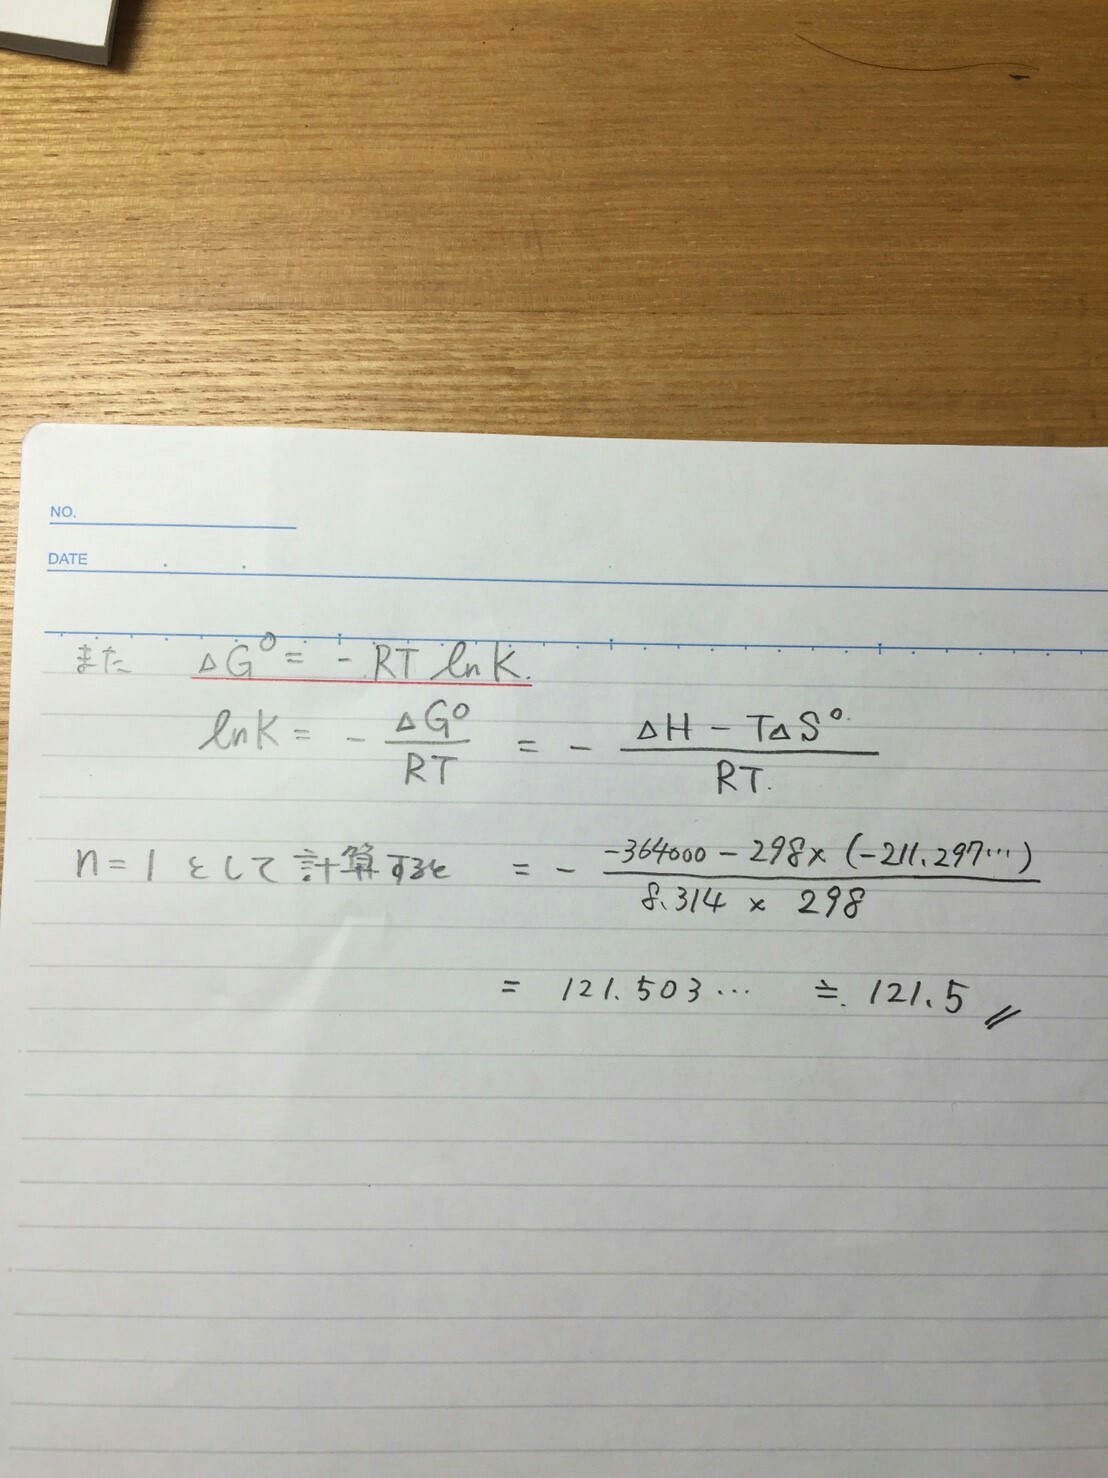 NO.
DATE
また ΔG⁰ = - RT ln K.
ln K = - ΔG⁰/RT = - (ΔH - TΔS⁰)/RT.
n = 1 として計算すると = - (-364000 - 298 × (-211.297…))/(8.314 × 298)
= 121.503… ≒ 121.5